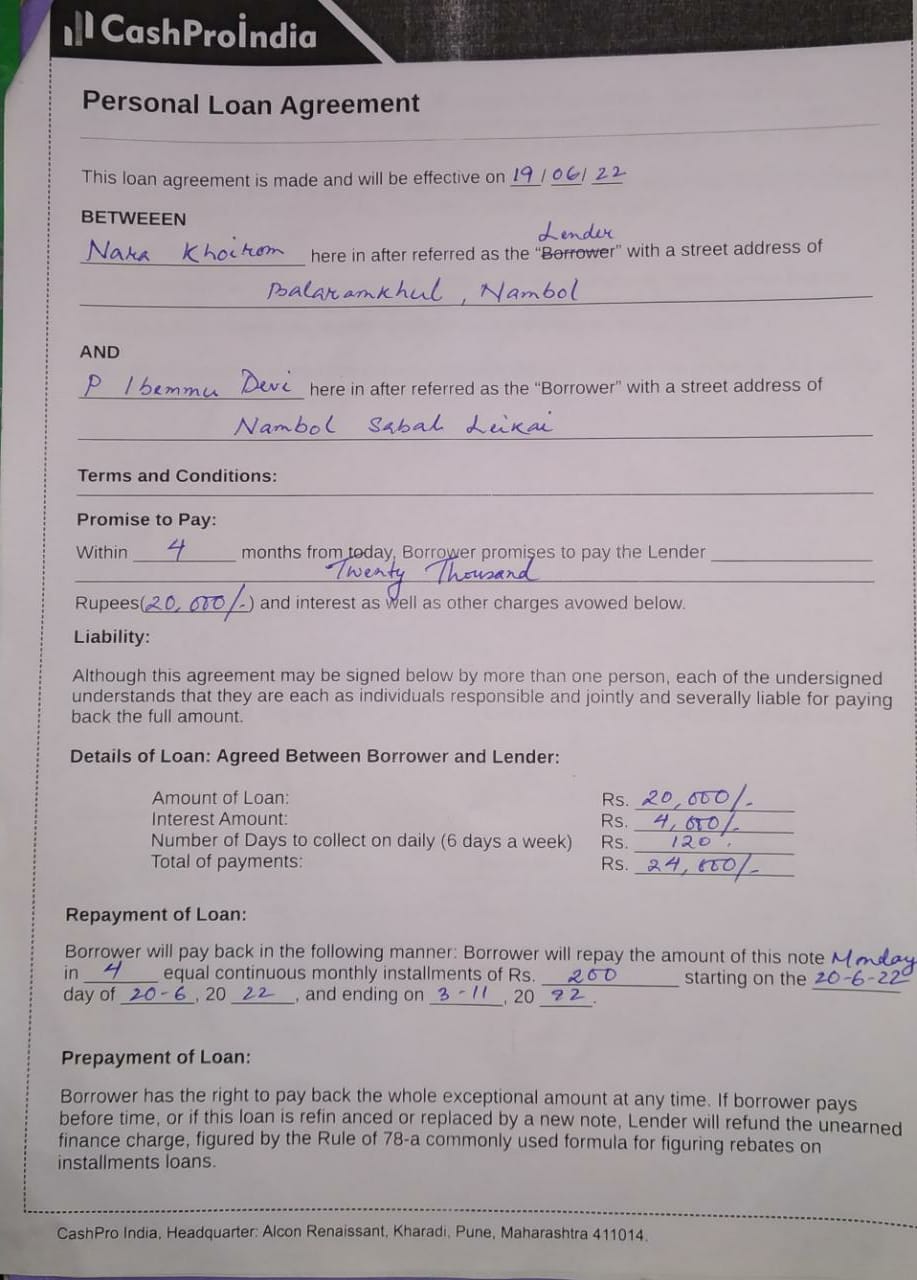 CashProİndia
Personal Loan Agreement
This loan agreement is made and will be effective on 19/06/22
BETWEEEN
Lender
Nara Khoirom here in after referred as the “Borrower” with a street address of
Balaramkhul, Nambol
AND
P Ibemmu Devi here in after referred as the “Borrower” with a street address of
Nambol Sabal Leikai
Terms and Conditions:
Promise to Pay:
Within 4 months from today, Borrower promises to pay the Lender
Twenty Thousand
Rupees(20,000/-) and interest as well as other charges avowed below.
Liability:
Although this agreement may be signed below by more than one person, each of the undersigned
understands that they are each as individuals responsible and jointly and severally liable for paying
back the full amount.
Details of Loan: Agreed Between Borrower and Lender:
Amount of Loan: Rs. 20,000/-
Interest Amount: Rs. 4,000/-
Number of Days to collect on daily (6 days a week) Rs. 120
Total of payments: Rs. 24,000/-
Repayment of Loan:
Borrower will pay back in the following manner: Borrower will repay the amount of this note Monday
in 4 equal continuous monthly installments of Rs. 200 starting on the 20-6-22
day of 20-6, 20 22, and ending on 3-11, 20 22.
Prepayment of Loan:
Borrower has the right to pay back the whole exceptional amount at any time. If borrower pays
before time, or if this loan is refin anced or replaced by a new note, Lender will refund the unearned
finance charge, figured by the Rule of 78-a commonly used formula for figuring rebates on
installments loans.
CashPro India, Headquarter: Alcon Renaissant, Kharadi, Pune, Maharashtra 411014.